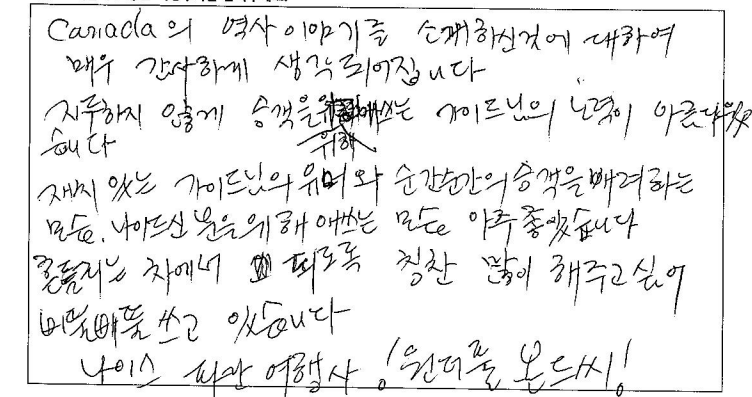 Canada의 역사 이야기를 소개하신것에 대하여
매우 감사하게 생각되어집니다
지루하지 않게 승객을 애쓰는 가이드님의 노력이 아름다웠
습니다
위해
재치 있는 가이드님의 유머와 순간순간의 승객을 배려하는
모습. 나이드신 분을 위해 애쓰는 모습 아주 좋았습니다
흔들리는 차에서 되도록 칭찬 많이 해주고 싶어
삐뚤빼뚤 쓰고 있습니다
나이스 파란 여행사! 원더풀